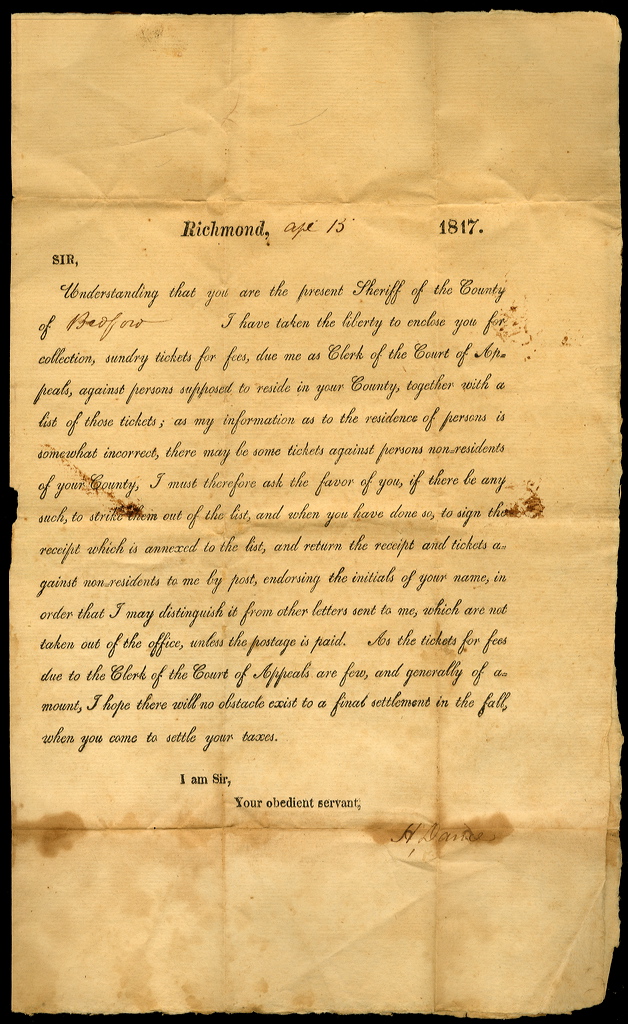 Richmond, Apl 15 1817.
SIR,
Understanding that you are the present Sheriff of the County
of Bedford I have taken the liberty to enclose you for
collection, sundry tickets for fees, due me as Clerk of the Court of Ap=
peals, against persons supposed to reside in your County, together with a
list of those tickets; as my information as to the residence of persons is
somewhat incorrect, there may be some tickets against persons non=residents
of your County, I must therefore ask the favor of you, if there be any
such, to strike them out of the list, and when you have done so, to sign the
receipt which is annexed to the list, and return the receipt and tickets a=
gainst non=residents to me by post, endorsing the initials of your name, in
order that I may distinguish it from other letters sent to me, which are not
taken out of the office, unless the postage is paid. As the tickets for fees
due to the Clerk of the Court of Appeals are few, and generally of a=
mount, I hope there will no obstacle exist to a final settlement in the fall,
when you come to settle your taxes.
I am Sir,
Your obedient servant,
H.